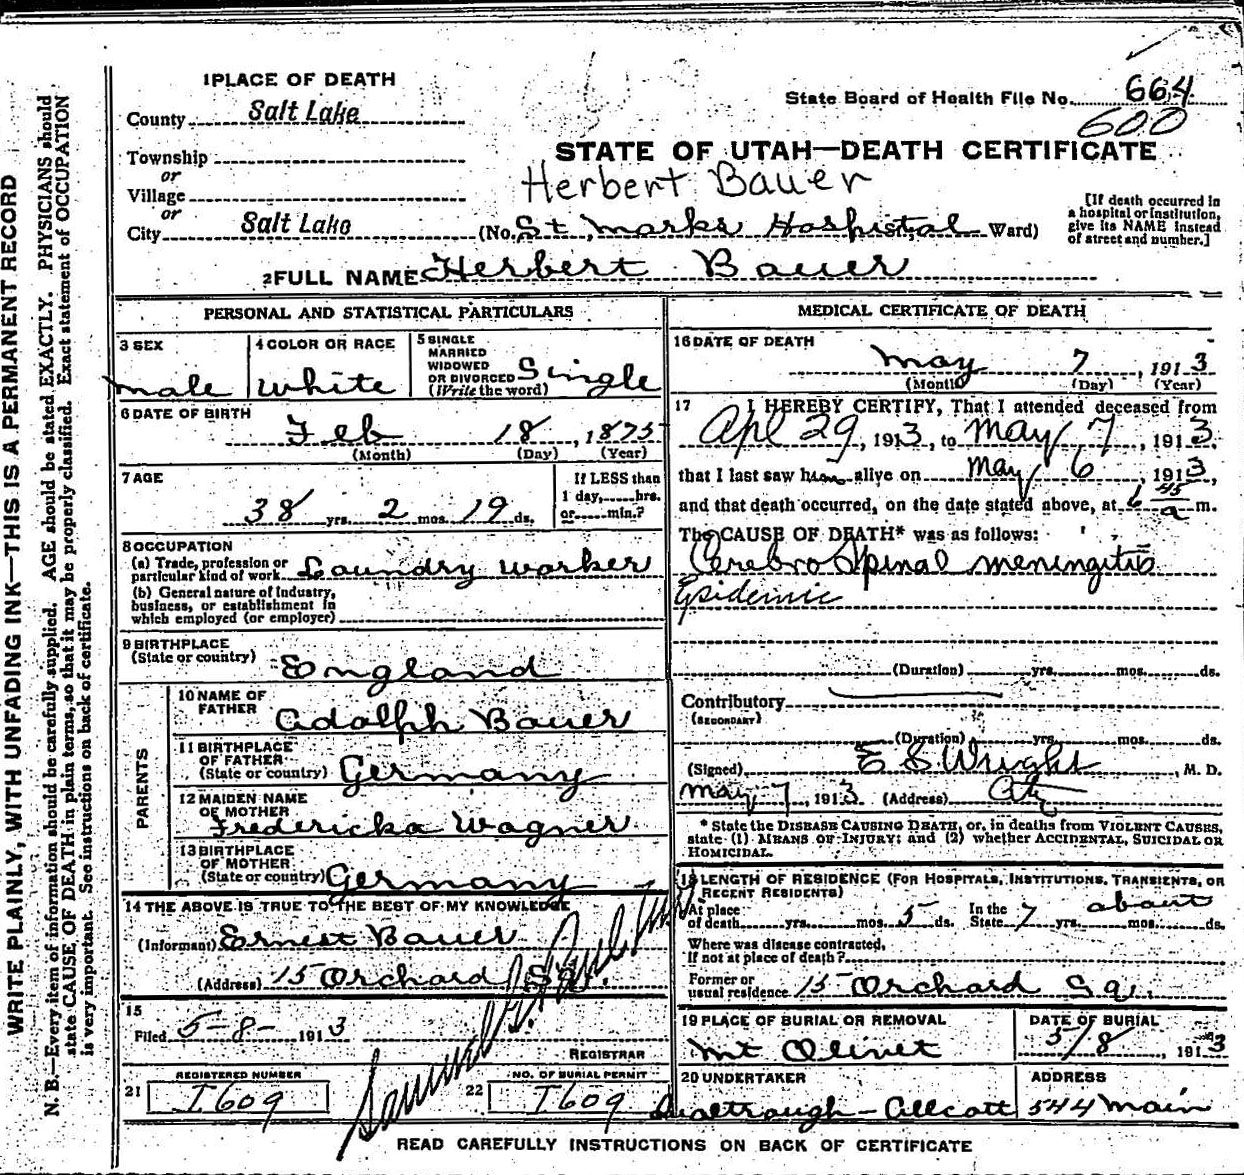 WRITE PLAINLY, WITH UNFADING INK—THIS IS A PERMANENT RECORD
N. B.—Every item of information should be carefully supplied. AGE should be stated EXACTLY. PHYSICIANS should
state CAUSE OF DEATH in plain terms, so that it may be properly classified. Exact statement of OCCUPATION
is very important. See instructions on back of certificate.
1 PLACE OF DEATH
County Salt Lake
Township
or
Village
or
City Salt Lake
State Board of Health File No. 664
600
STATE OF UTAH—DEATH CERTIFICATE
Herbert Bauer
(No. St Marks Hospistal Ward)
[If death occurred in
a hospital or institution,
give its NAME instead
of street and number.]
2 FULL NAME Herbert Bauer
PERSONAL AND STATISTICAL PARTICULARS
3 SEX
male
4 COLOR OR RACE
White
5 SINGLE
MARRIED
WIDOWED
OR DIVORCED
(Write the word)
Single
6 DATE OF BIRTH
Feb 18, 1875
(Month) (Day) (Year)
7 AGE
38 yrs. 2 mos. 19 ds.
If LESS than
1 day, hrs.
or min.?
8 OCCUPATION
(a) Trade, profession or
particular kind of work Laundry worker
(b) General nature of Industry,
business, or establishment in
which employed (or employer)
9 BIRTHPLACE
(State or country) England
PARENTS
10 NAME OF
FATHER Adolph Bauer
11 BIRTHPLACE
OF FATHER
(State or country) Germany
12 MAIDEN NAME
OF MOTHER
Fredericka Wagner
13 BIRTHPLACE
OF MOTHER
(State or country) Germany
14 THE ABOVE IS TRUE TO THE BEST OF MY KNOWLEDGE
(Informant) Ernest Bauer
(Address) 15 Orchard Sq.
15
Filed 5-8- 1913
Samuel G. Paul
REGISTRAR
REGISTERED NUMBER
21 I609
NO. OF BURIAL PERMIT
22 I609
MEDICAL CERTIFICATE OF DEATH
16 DATE OF DEATH
May 7, 1913
(Month) (Day) (Year)
17 I HEREBY CERTIFY, That I attended deceased from
Apl 29, 1913, to May 7, 1913.
that I last saw him alive on May 6, 1913,
and that death occurred, on the date stated above, at 6 45 a m.
The CAUSE OF DEATH* was as follows:
Cerebro Spinal meningitis
Epidemic
(Duration) yrs. mos. ds.
Contributory
(SECONDARY)
(Duration) yrs. mos. ds.
(Signed) E S Wright, M. D.
May 7, 1913 (Address) City
* State the DISEASE CAUSING DEATH, or, in deaths from VIOLENT CAUSES,
state (1) MEANS OF INJURY; and (2) whether ACCIDENTAL, SUICIDAL OR
HOMICIDAL.
18 LENGTH OF RESIDENCE (FOR HOSPITALS, INSTITUTIONS, TRANSIENTS, OR
RECENT RESIDENTS)
At place
of death yrs. mos. 5 ds.
In the
State 7 yrs. about mos. ds.
Where was disease contracted,
If not at place of death?
Former or
usual residence 15 Orchard Sq.
19 PLACE OF BURIAL OR REMOVAL
Mt Olivet
DATE OF BURIAL
5/8, 1913
20 UNDERTAKER
Allcott
ADDRESS
544 Main
READ CAREFULLY INSTRUCTIONS ON BACK OF CERTIFICATE